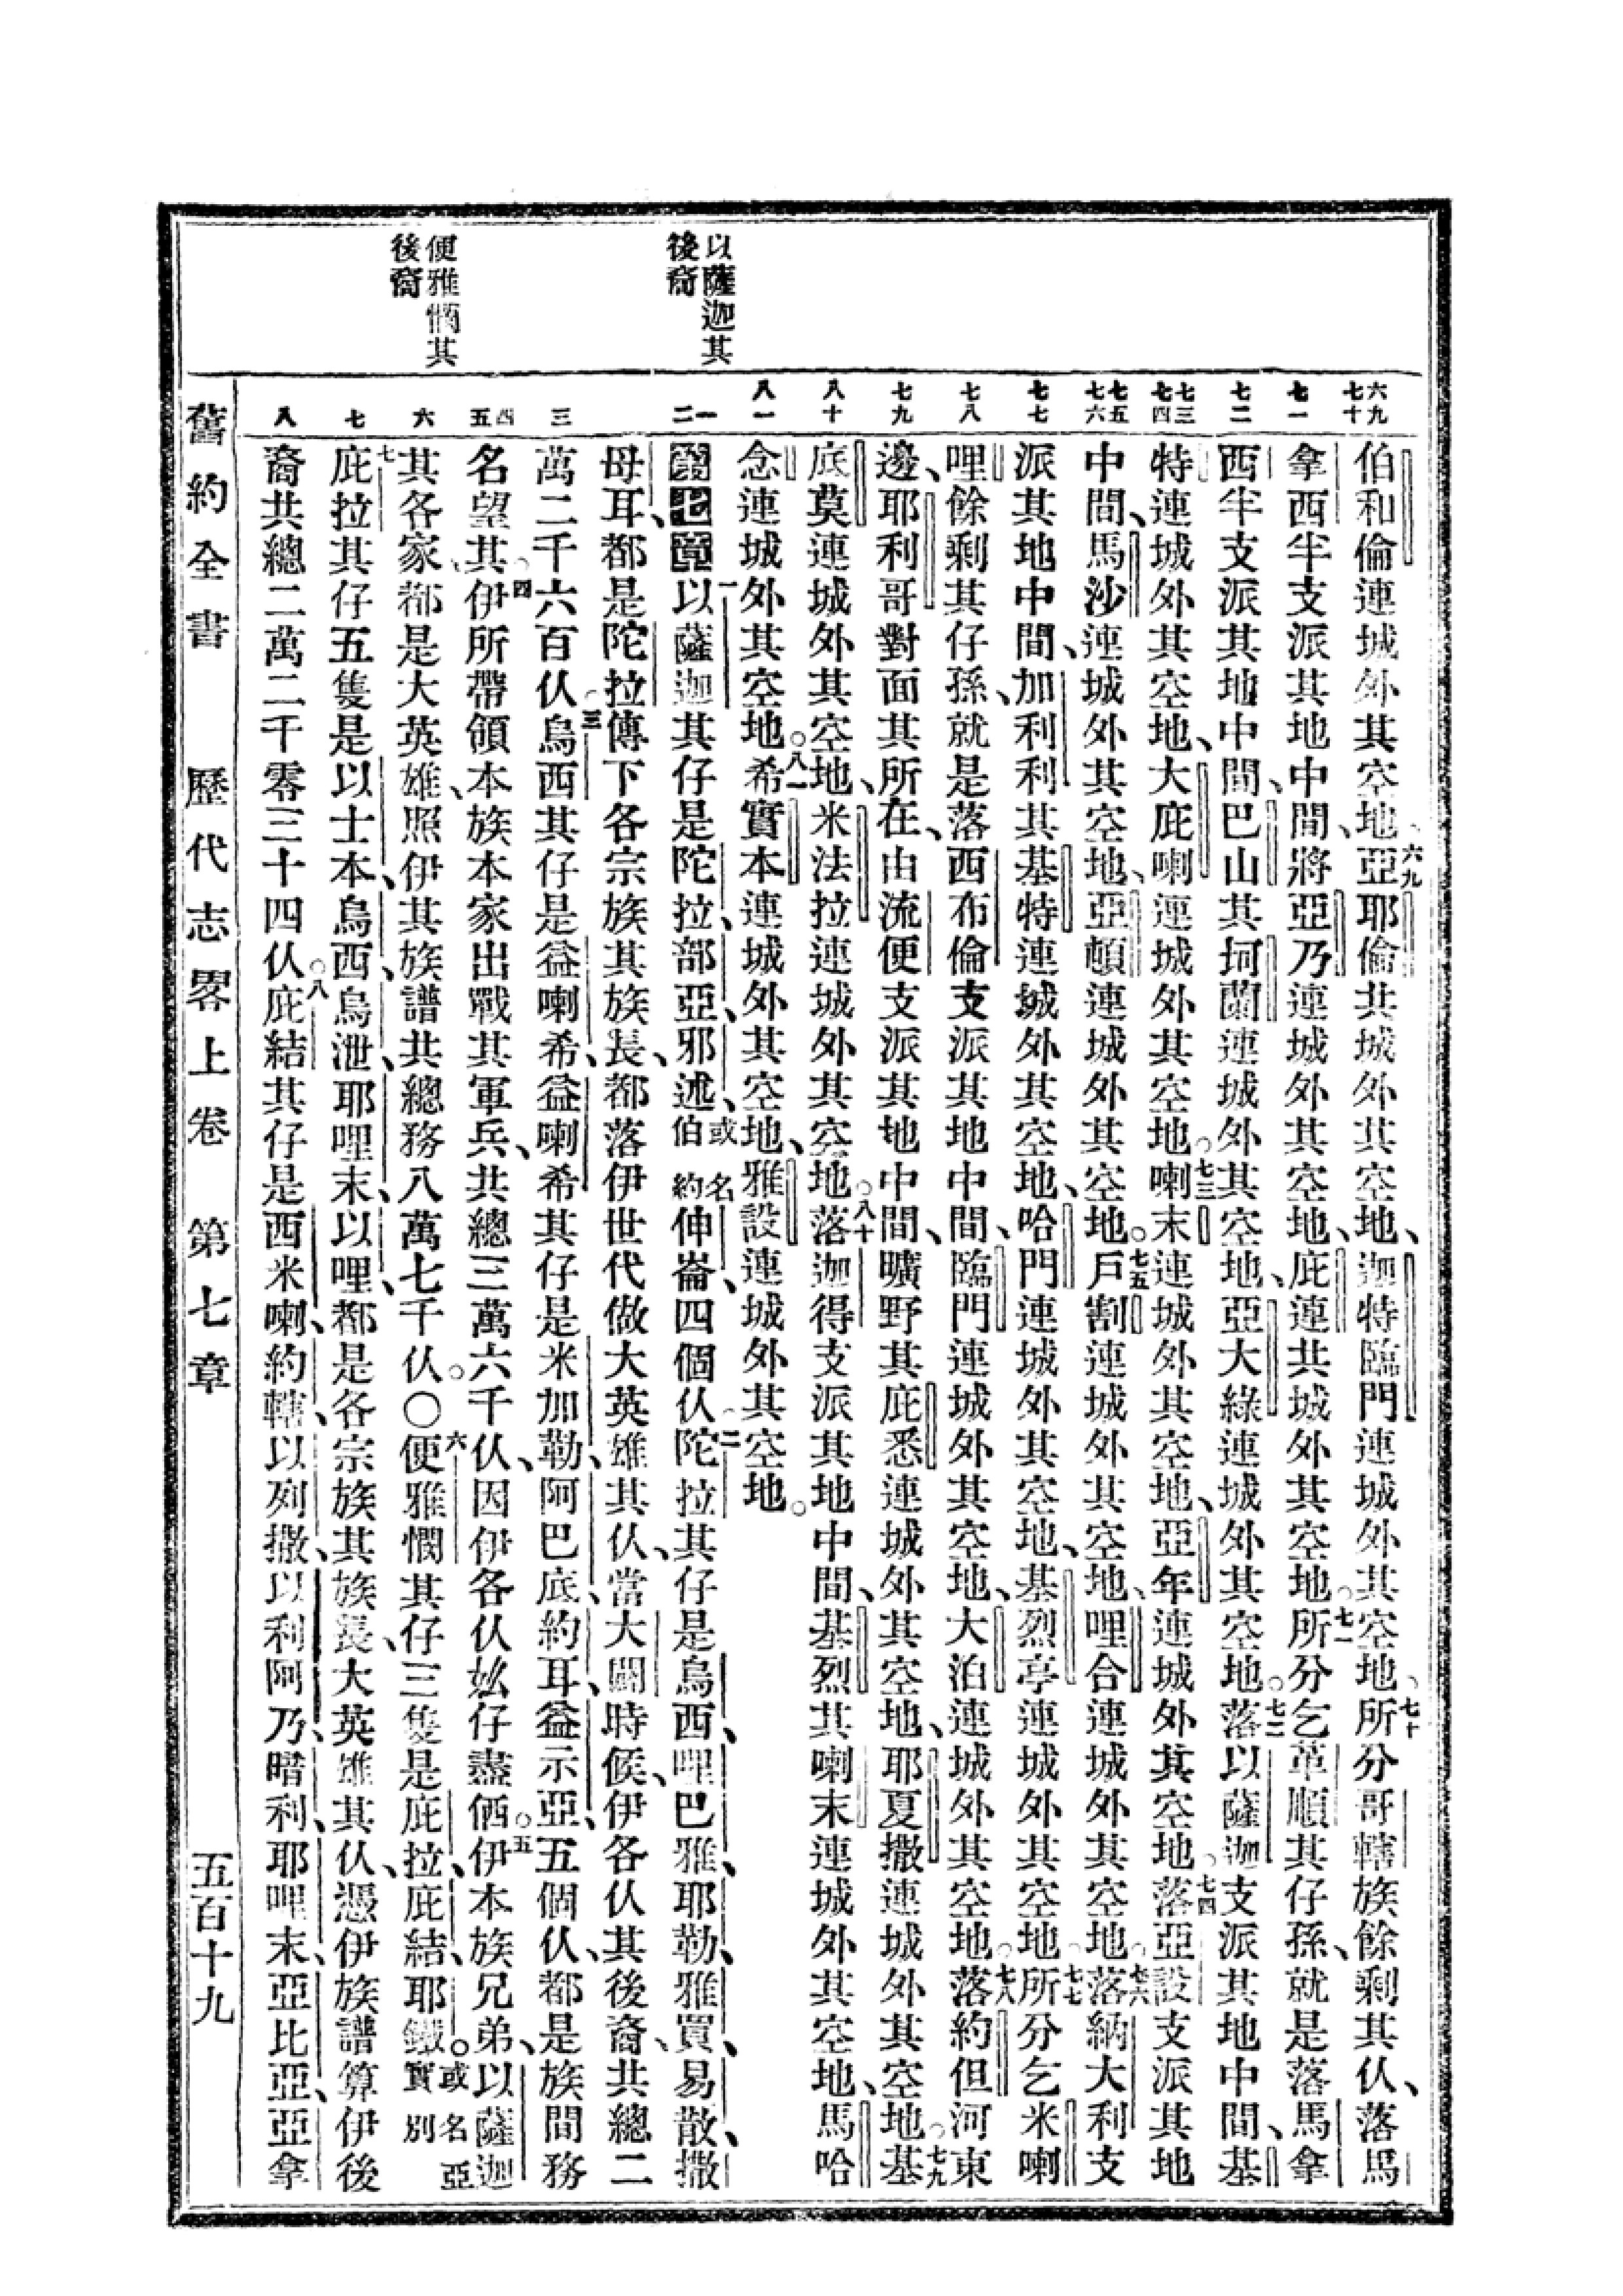 以薩迦其
後裔
便雅憫其
後裔
六九 七十 七一 七二 七三 七四 七五 七六 七七 七八 七九 八十 八一 一 二 三 四 五 六 七 八
伯和倫連城外其空地、六九亞耶倫共城外其空地、迦特臨門連城外其空地、七十所分哥轄族餘剩其仈、落馬
拿西半支派其地中間、將亞乃連城外其空地、庇連共城外其空地。七一所分乞革順其仔孫、就是落馬拿
西半支派其地中間、巴山其坷蘭連城外其空地、亞大綠連城外其空地。七二落以薩迦支派其地中間、基
特連城外其空地、大庇喇連城外其空地。七三喇末連城外其空地、亞年連城外其空地。七四落亞設支派其地
中間、馬沙連城外其空地、亞頓連城外其空地。七五戶割連城外其空地、哩合連城外其空地。七六落納大利支
派其地中間、加利利其基特連城外其空地、哈門連城外其空地、基烈亭連城外其空地。七七所分乞米喇
哩餘剩其仔孫、就是落西布倫支派其地中間、臨門連城外其空地、大泊連城外其空地。七八落約但河東
邊、耶利哥對面其所在、由流便支派其地中間、曠野其庇悉連城外其空地、耶夏撒連城外其空地。七九基
底莫連城外其空地、米法拉連城外其空地。八十落迦得支派其地中間、基烈其喇末連城外其空地、馬哈
念連城外其空地。八一希實本連城外其空地、雅設連城外其空地。
第七章一以薩迦其仔是陀拉、部亞、邪述、或名伯約伸崙、四個仈。二陀拉其仔是烏西、哩巴雅、耶勒、雅買、易散、撒
母耳、都是陀拉傳下各宗族其族長、都落伊世代做大英雄其仈、當大闢時候、伊各仈其後裔、共總二
萬二千六百仈。三烏西其仔是益喇希、益喇希其仔是米加勒、阿巴底、約耳、益示亞、五個仈、都是族間務
名望其。四伊所帶領本族本家出戰其軍兵、共總三萬六千仈、因伊各仈妐仔盡価。五伊本族兄弟、以薩迦
其各家、都是大英雄、照伊其族譜共總務八萬七千仈。〇六便雅憫其仔三隻是庇拉、庇結、耶鐵。或名亞實別
七庇拉其仔五隻是以士本、烏西、烏泄、耶哩末、以哩、都是各宗族其族長、大英雄其仈、憑伊族譜算伊後
裔共總二萬二千零三十四仈。八庇結其仔是西米喇、約轄、以列撒、以利阿乃、暗利、耶哩末、亞比亞、亞拿
舊約全書 歷代志畧上卷 第七章 五百十九